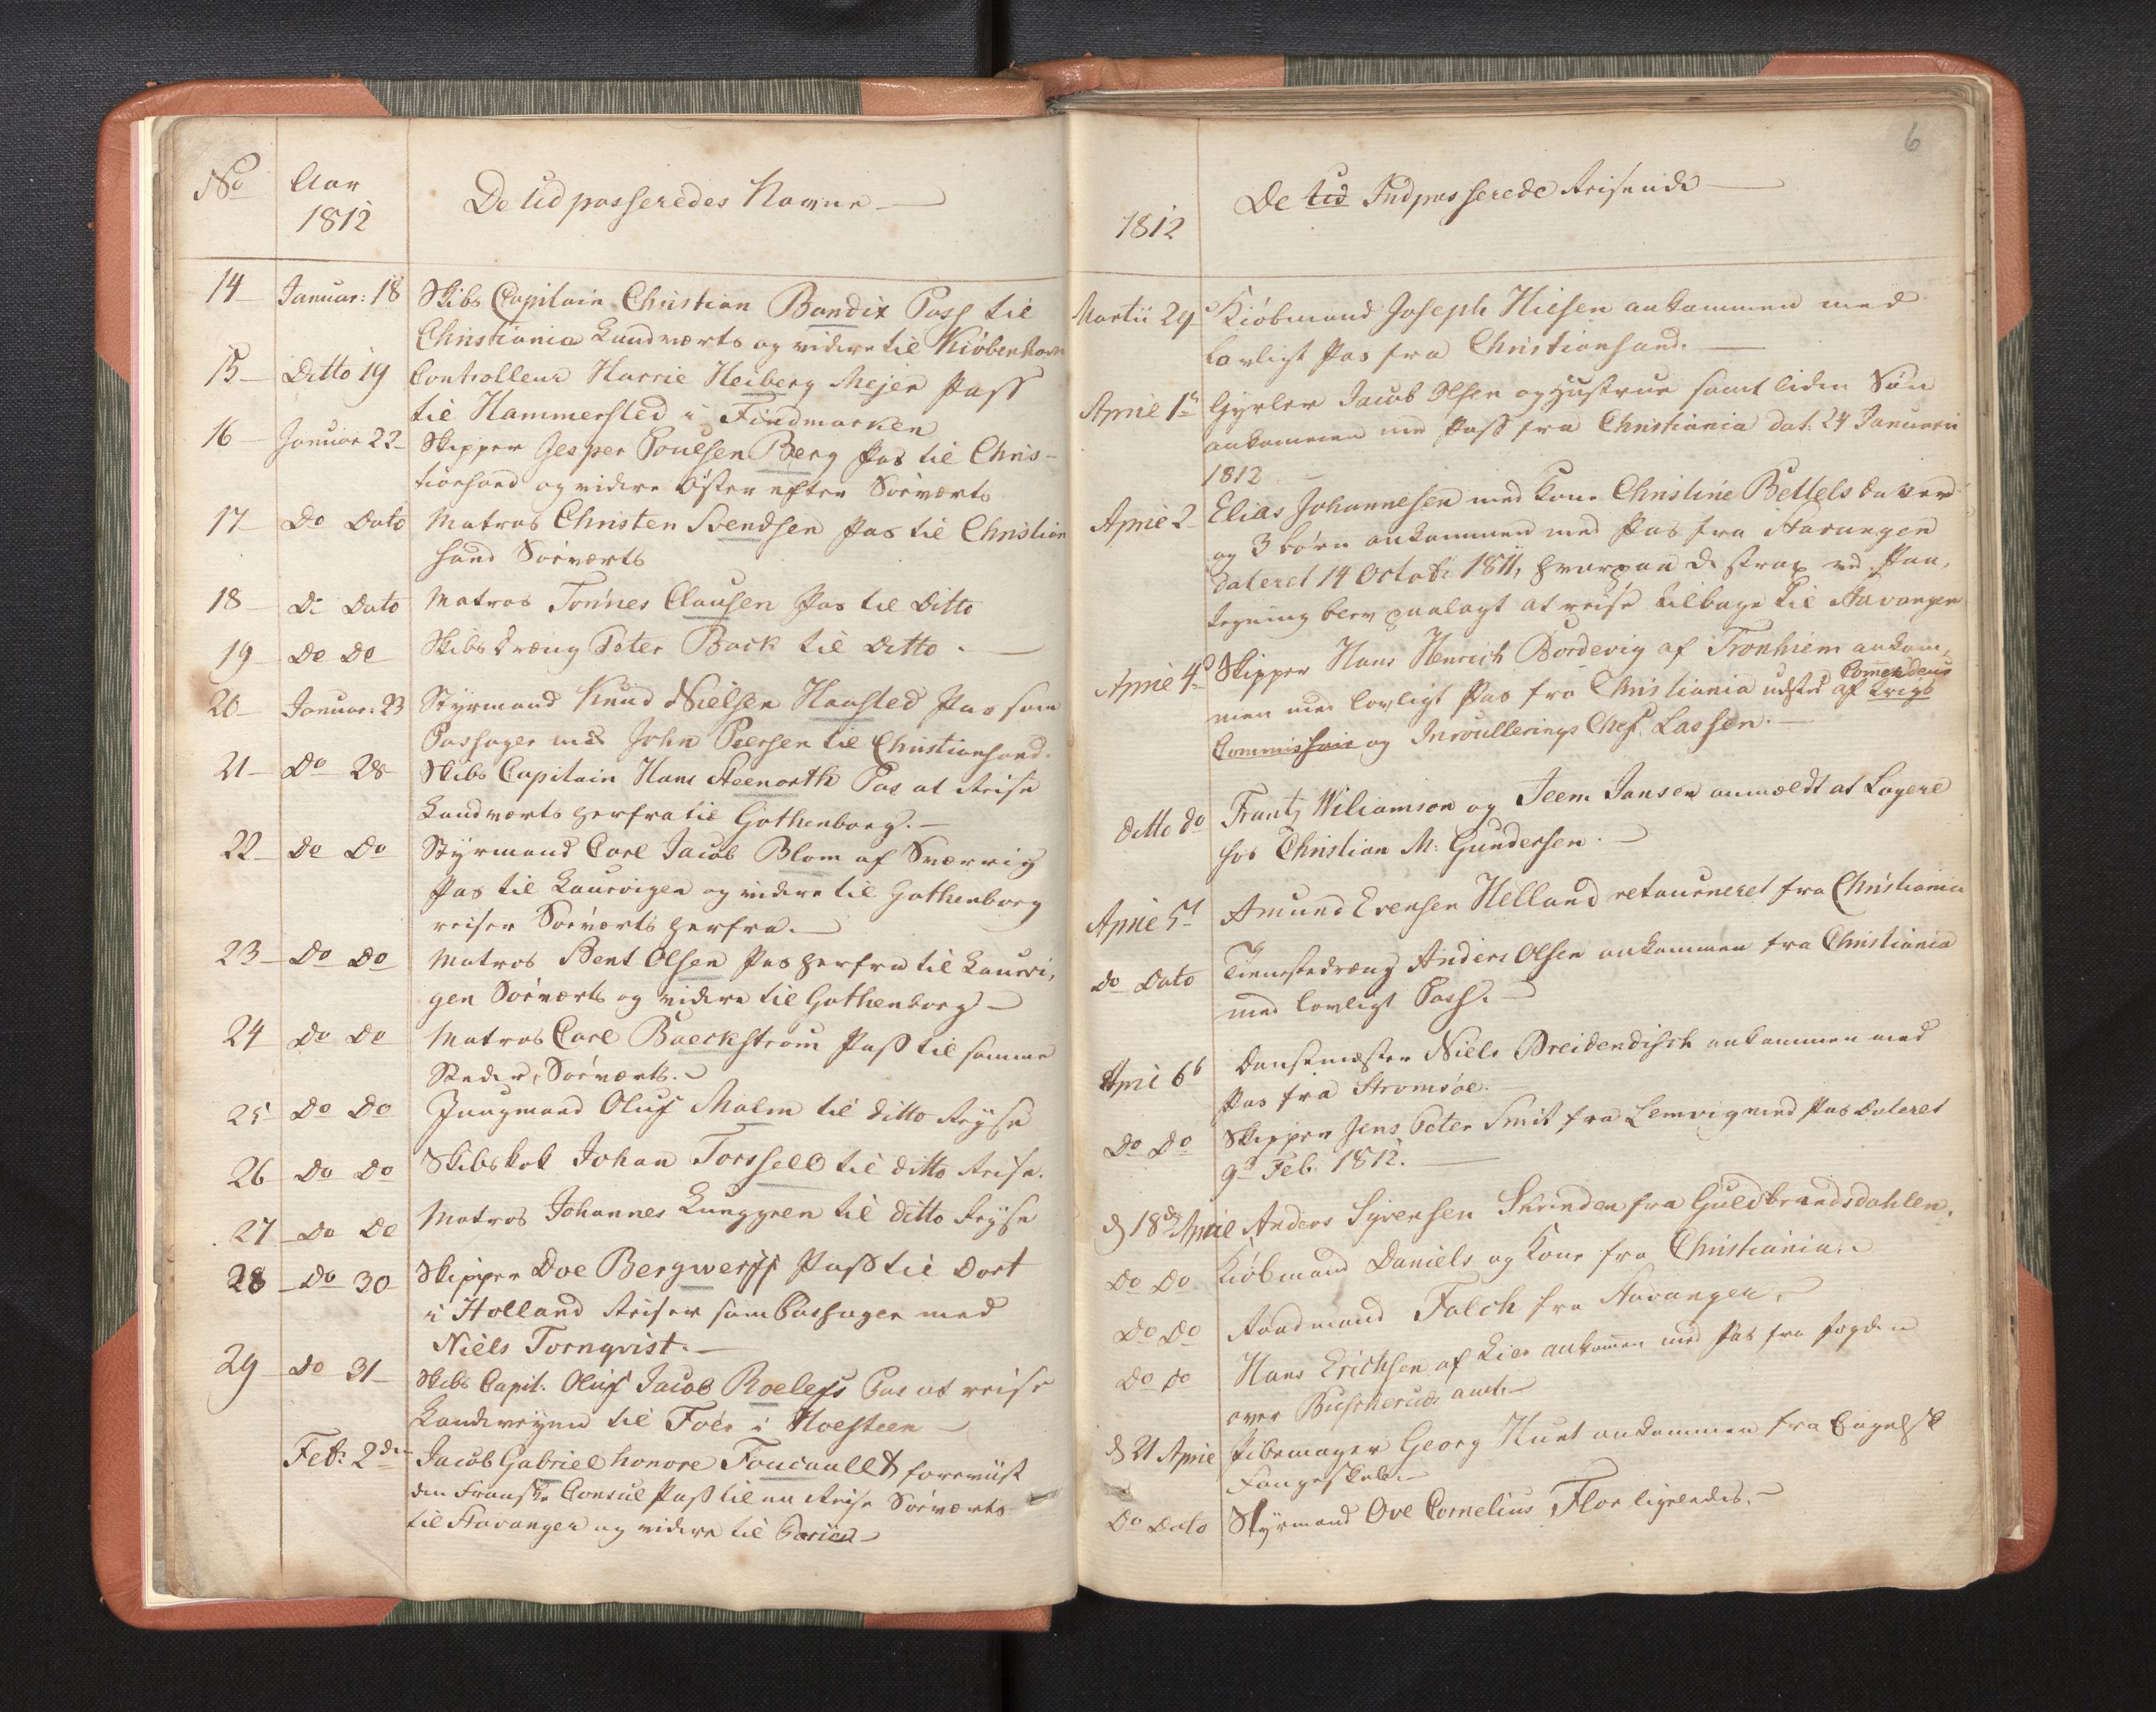 No
Aar
1812
De Udpasseredes Navne
14 Januar: 18 Skibs Capitain Christian Bandix Pass til
Christiania Landværts og videre til Kiøbenhavn
15 Ditto 19 Controlleur Harrie Heiberg Mejer Pass
til Hammersted i Findmarken
16 Januar 22 Skipper Jesper Poulsen Berg Pas til Chris-
tiansand og videre Øster efter Søeværts
17 Do Dato Matros Christen Svendsen Pas til Christian
sand Søeværts
18 Di Dato Matros Tønnes Clausen Pas til Ditto
19 Do Do Skibs dræng Peter Back til Ditto.
20 Januar: 23 Styrmand Knud Nielsen Haasted Pas som
Passager med John Peersen til Christiansand.
21 Do 28 Skibs Capitain Hans Steenorth Pas at Reise
Landværts herfra til Gothenborg.
22 Do Do Styrmand Carl Jacob Blom af Sværrig
Pas til Laurvigen og videre til Gothenborg
reiser Søeværts herfra.
23 Do Do Matros Bent Olsen Pas herfra til Laurvi,
gen Søeværts og videre til Gothenborg
24 Do Do Matros Carl Baeckstrøm Pass til samme
Steder, Søeværts.
25 Do Do Jungmand Oluf Malm til ditto Reyse
26 Do Do Skibskok Johan Torssell til ditto Reise.
27 Do Do Matros Johannes Lunggren til ditto Reyse
28 Do 30 Skipper Doe Bergwerff Pass til Dort
i Holland Reiser som Passager med
Niels Tornqvist.
29 Do 31 Skibs Capit: Oluf Jacob Roelefs Pas at reise
Landeveyen til Föer i Holsteen
Feb: 2den Jacob Gabriel honore Foucault foreviist
den Franske Consul Pass til en Reise Søeværts
til Stavanger og videre til Pariis
6
1812
De Ud Indpasserede Reisende
Martii 29 Kiøbmand Joseph Nielsen ankommen med
Lovligt Pas fra Christiansand.
April 1n Gjørtler Jacob Olsen og Hustrue samt liden Søn
ankommen med Pass fra Christiania dat: 24 Januarii
1812
April 2 Elias Johannesen med Kone Christine Bettels datter
og 3 børn ankommen med Pas fra Stavanger
Dateret 14 Octobr 1811, hvorpaa de strax ved Paa,
tegning blev paalagt at reise tilbage til Stavanger
April 4d Skipper Hans Henrich Bordevig af Tronhiem ankom,
men med lovligt Pas fra Christiania udsted af Krigs Comendeur
Commissair og Inroullerings Chef. Lassen.
Ditto do Frantz Wiliamson og Jeem Jansen anmældt at Logere
hos Christian M: Gundersen.
April 5t Amund Evensen Helland retourneret fra Christiania
do Dato Tienestedræng Anders Olsen ankommen fra Christiania
med lovligt Pass.
April 6t Dansemester Niels Breidendisch ankommen med
Pas fra Strømsøe.
Do Do Skipper Jens Peter Smit fra Lemvig med Pas Dateret
9d Feb. 1812.
d 18de April Anders Syversen Skrinden fra Guldbrandsdahlen.
Do Do Kiøbmand Daniels og Kone fra Christiania.
Do Do Raadmand Falch fra Stavanger.
Do Do Hans Erichsen af Lier ankommen med Pas fra fogden
over Buscheruds amt.
d 21 April Pibemager Georg Hunt ankommen fra Engelsk
Fangeskab.
Do Dato Styrmand Ove Cornelius Flor ligeledes.